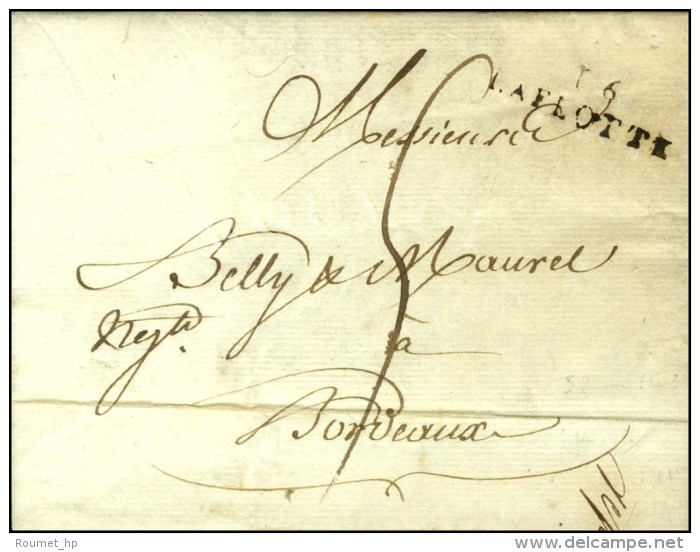 16
LAFLOTTE
Messieurs
Belly & Maurel
Negts.
à
Bordeaux
Roumet_hp
www.delcampe.net